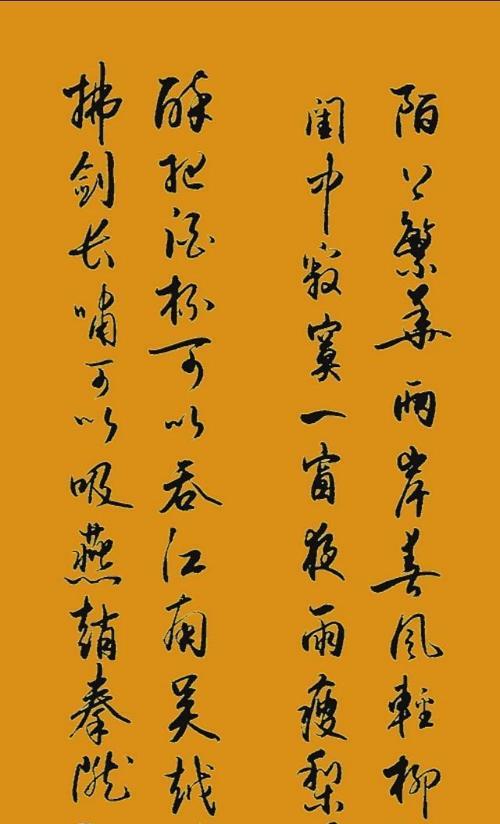 陌上繁華兩岸春风輕柳
闺中寂寞一窗夜雨瘦梨
醉把酒杯可以吞江南吴越
拂剑长啸可以吸燕趙秦陇